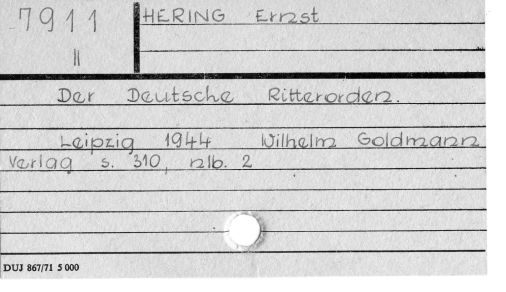 7911 HERING Ernst
II
Der Deutsche Ritterorden.
Leipzig 1944 Wilhelm Goldmann
Verlag s. 310, nlb. 2
DUJ 867/71 5 000